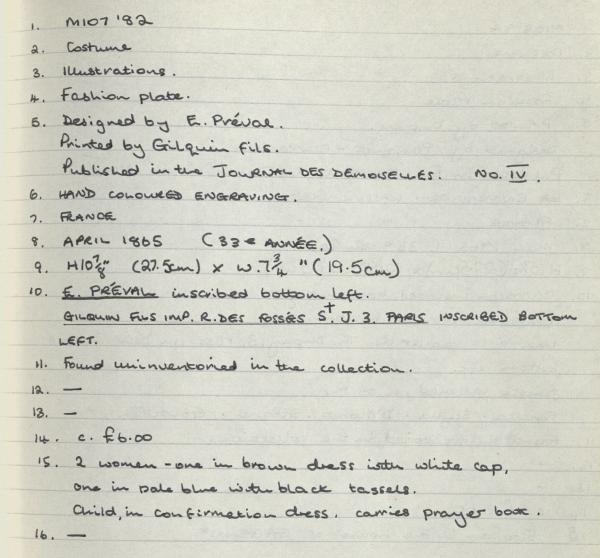 1. M107 '82
2. Costume
3. Illustrations.
4. Fashion plate.
5. Designed by E. Préval.
Printed by Gilquin fils.
Published in the JOURNAL DES DEMOISELLES. NO. IV.
6. HAND COLOURED ENGRAVING.
7. FRANCE
8. APRIL 1865 (33e ANNÉE.)
9. H10⅞" (27.5cm) x W.7¾" (19.5cm)
10. E. PRÉVAL inscribed bottom left.
GILQUIN FILS IMP. R. DES FOSSÉS St. J. 3. PARIS INSCRIBED BOTTOM
LEFT.
11. Found uninventoried in the collection.
12. —
13. —
14. c. £6.00
15. 2 women - one in brown dress with white cap,
one in pale blue with black tassels.
Child, in confirmation dress. carries prayer book.
16. —